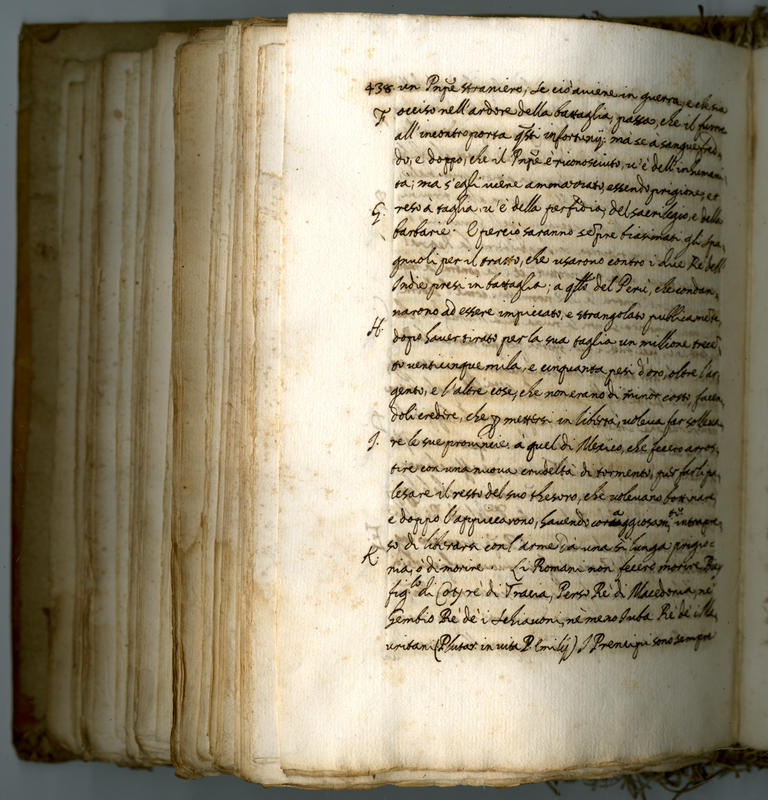 438 un Pnpe straniero, se ciò aviene in guerra, e che sia
F. occiso nell'ardore della battaglia, passa, che il furore
all'incontro porta qsti infortunij; mà se a sangue fred-
do, e doppo, che il Pnpe è riconosciuto, u'è dell'inhumani
tà; mà s'egli viene ammazzato, essendo prigione, et
G. reso à taglia u'è della perfidia, del sacrilegio, e della
barbarie. E perciò saranno sepre biasimati gli Spa-
gnuoli per il tratto, che usarono contro i due Rè dell'
Indie presi in battaglia; a qllo del Perù, che condan-
narono ad essere impiccato, e strangolato publicamete,
H. dopo haver tirato per la sua taglia un millione trece
to venticinque mila, e cinquanta pesi d'oro, oltre l'ar-
gento, e l'altre cose, che non erano di minor costo, facen
doli credere, che p mettersi in libertà, voleva far solleva
I. re le sue provincie. à quel di Mexico, che fecero arros-
tire con una nuova crudeltà di tormento, per farli pa-
lesare il resto del suo thesoro, che volevano bottinare
e doppo l'appiccarono, havendo coraggiosam.te intrapre
so di liberarsi con l'arme da una sì lunga prigio-
K. nia, ò di morire. Li Romani non fecero morire
fig.lo di Coty rè di Tracia, Perso Rè di Macedonia, nè
Gembio Rè de i Schiavoni, nè meno Juba Rè de i Ma
uritani (Plutar. in vita P. Emilij) I Prencipi sono sempre